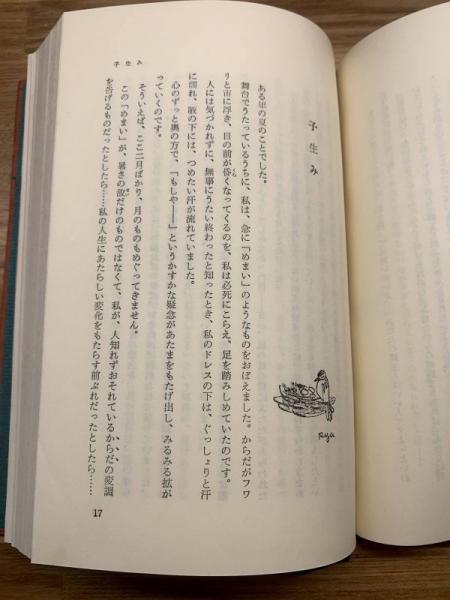 子生み
ある年の夏のことでした。
舞台でうたっているうちに、私は、急に「めまい」のようなものをおぼえました。からだがフワ
リと宙に浮き、目の前が昏くなってくるのを、私は必死にこらえ、足を踏みしめていたのです。
人には気づかれずに、無事にうたい終わったと知ったとき、私のドレスの下は、ぐっしょりと汗
に濡れ、腋の下には、つめたい汗が流れていました。
心のずっと奥の方で、「もしや――」というかすかな疑念があたまをもたげ出し、みるみる拡が
っていくのです。
そういえば、ここ二月ばかり、月のものもめぐってきません。
この「めまい」が、暑さの故だけのものではなくて、私が、人知れずおそれているからだの変調
を告げるものだったとしたら……私の人生にあたらしい変化をもたらす前ぶれだったとしたら……
子生み
17